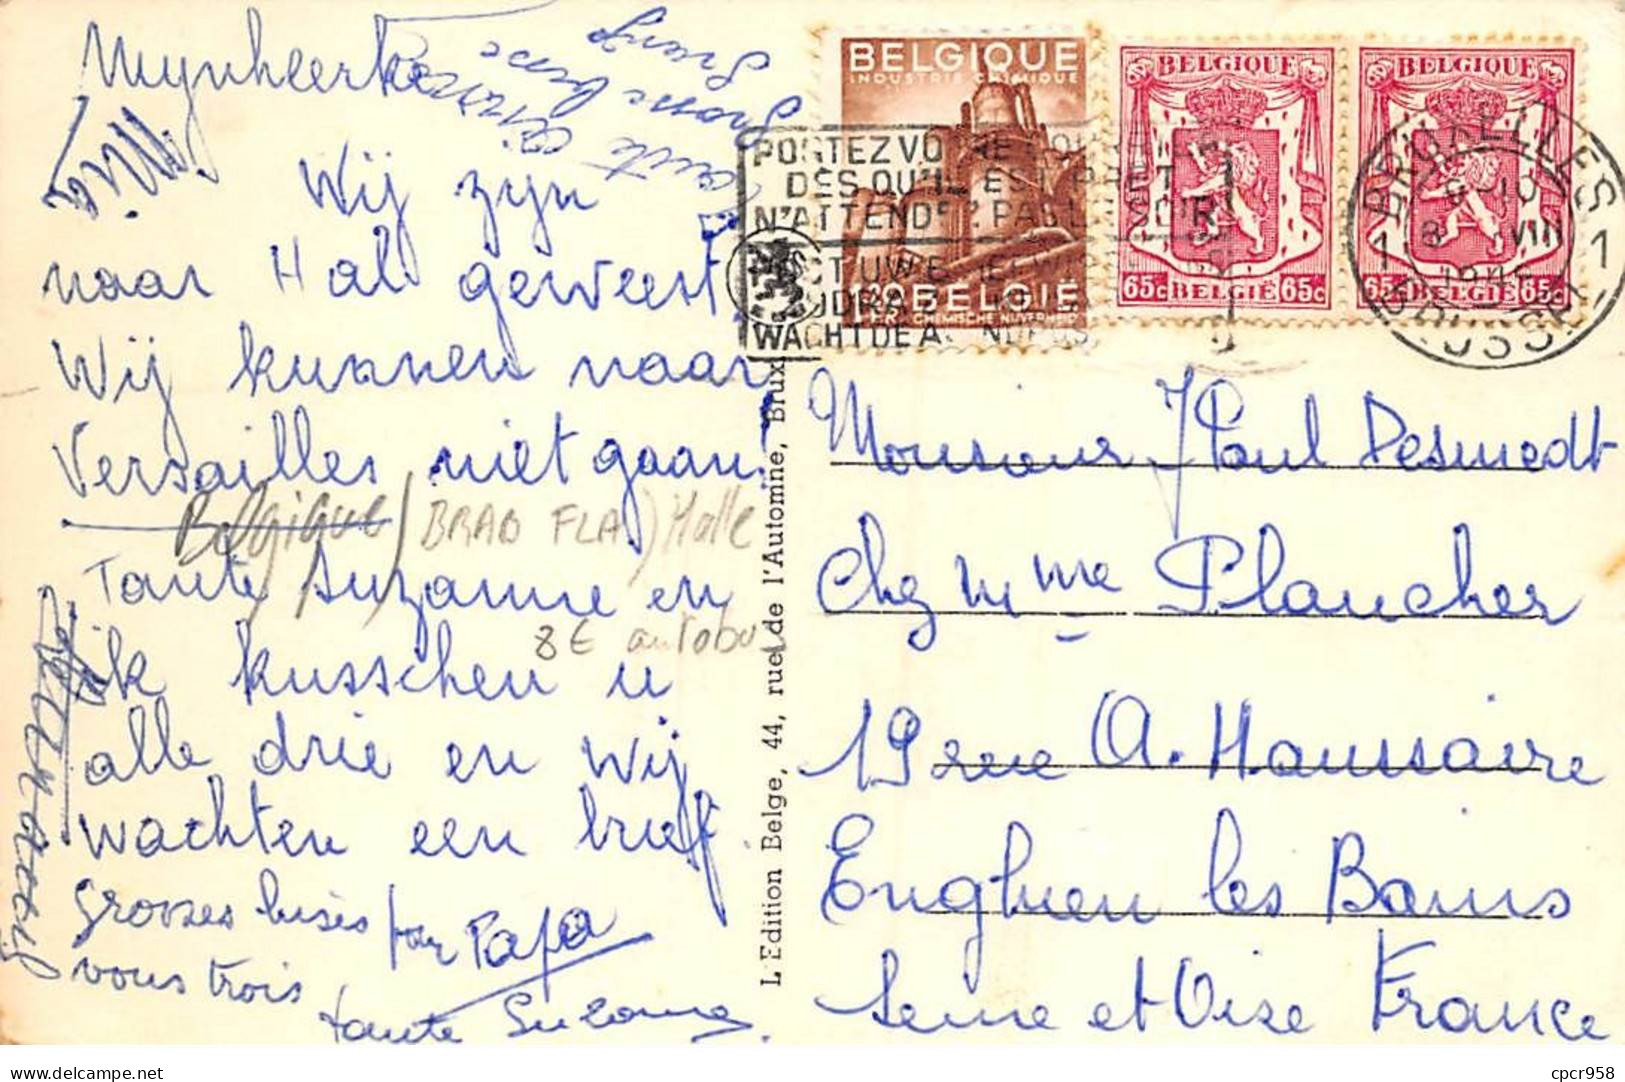 Mynheerke
Wij zijn
naar Hal geweest
Wij kunnen naar
Versailles niet gaan.
Belgique / BRAB FLA / Halle
Tante Suzanne en
8€ autobus
ik kusschen u
alle drie en wij
wachten een brief
grosses bises
vous trois
Papa
tante Suzanne
tante
grosse bise
L'Edition Belge, 44, rue de l'Automne, Brux.
BELGIQUE
INDUSTRIE CHIMIQUE
BELGIE
CHEMISCHE NIJVERHEID
BELGIQUE
65c BELGIË 65c
BELGIQUE
65c BELGIË 65c
POSTEZ VO
DES QU'IL EST PRET
N'ATTENDEZ PAS
WACHT DE A
BRUXELLES
1 1
BRUSSEL
Monsieur J Paul Desmedt
Chez Mme Plancher
19 rue A. Haussaire
Enghien les Bains
Seine et Oise France
delcampe.net
cpcr958